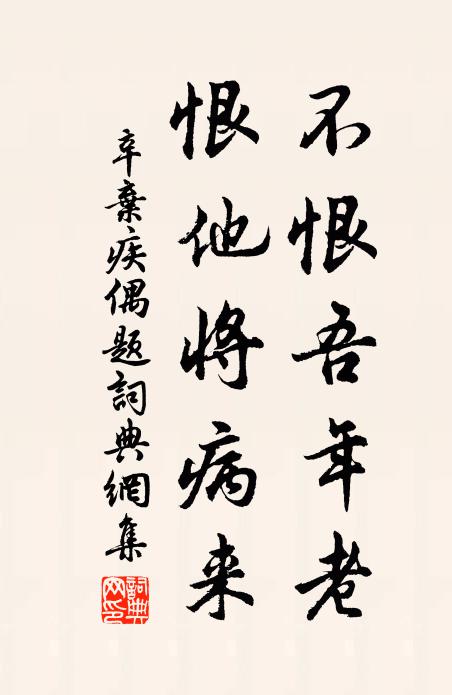 不恨吾年老
恨他将病来
辛棄疾偶题詞典網集
詞典网印